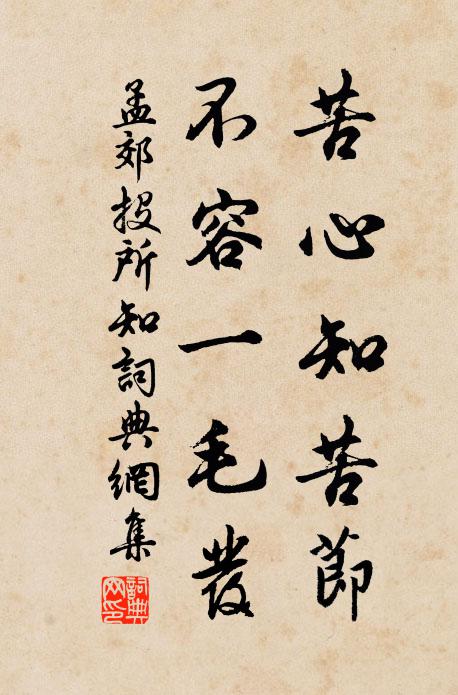 苦心知苦節
不容一毛發
孟郊投所知詞典網集
詞典網印